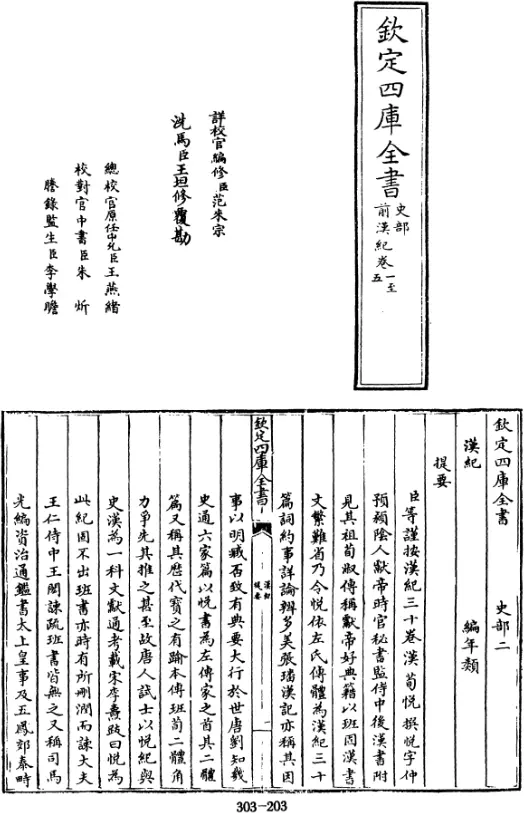 欽定四庫全書
史部
前漢紀卷一至
五
詳校官編修臣范來宗
洗馬臣王坦修覆勘
總校官原任中允臣王燕緒
校對官中書臣朱炘
謄錄監生臣李學瞻
欽定四庫全書
史部二
漢紀
編年類
提要
臣等謹按漢紀三十卷漢荀悅撰悅字仲
預潁陰人獻帝時官秘書監侍中後漢書附
見其祖荀淑傳稱獻帝好典籍以班固漢書
文繁難省乃令悅依左氏傳體為漢紀三十
篇詞約事詳論辨多美張璠漢記亦稱其因
欽定四庫全書
漢紀
提要
事以明臧否致有典要大行於世唐劉知幾
史通六家篇以悅書為左傳家之首其二體
篇又稱其歷代寶之有踰本傳班荀二體角
力爭先其推之甚至故唐人試士以悅紀與
史漢為一科文獻通考載宋李燾跋曰悅為
此紀固不出班書亦時有所刪潤而諫大夫
王仁侍中王閎諫疏班書皆無之又稱司馬
光編資治通鑑書太上皇事及五鳳郊泰畤
303-203